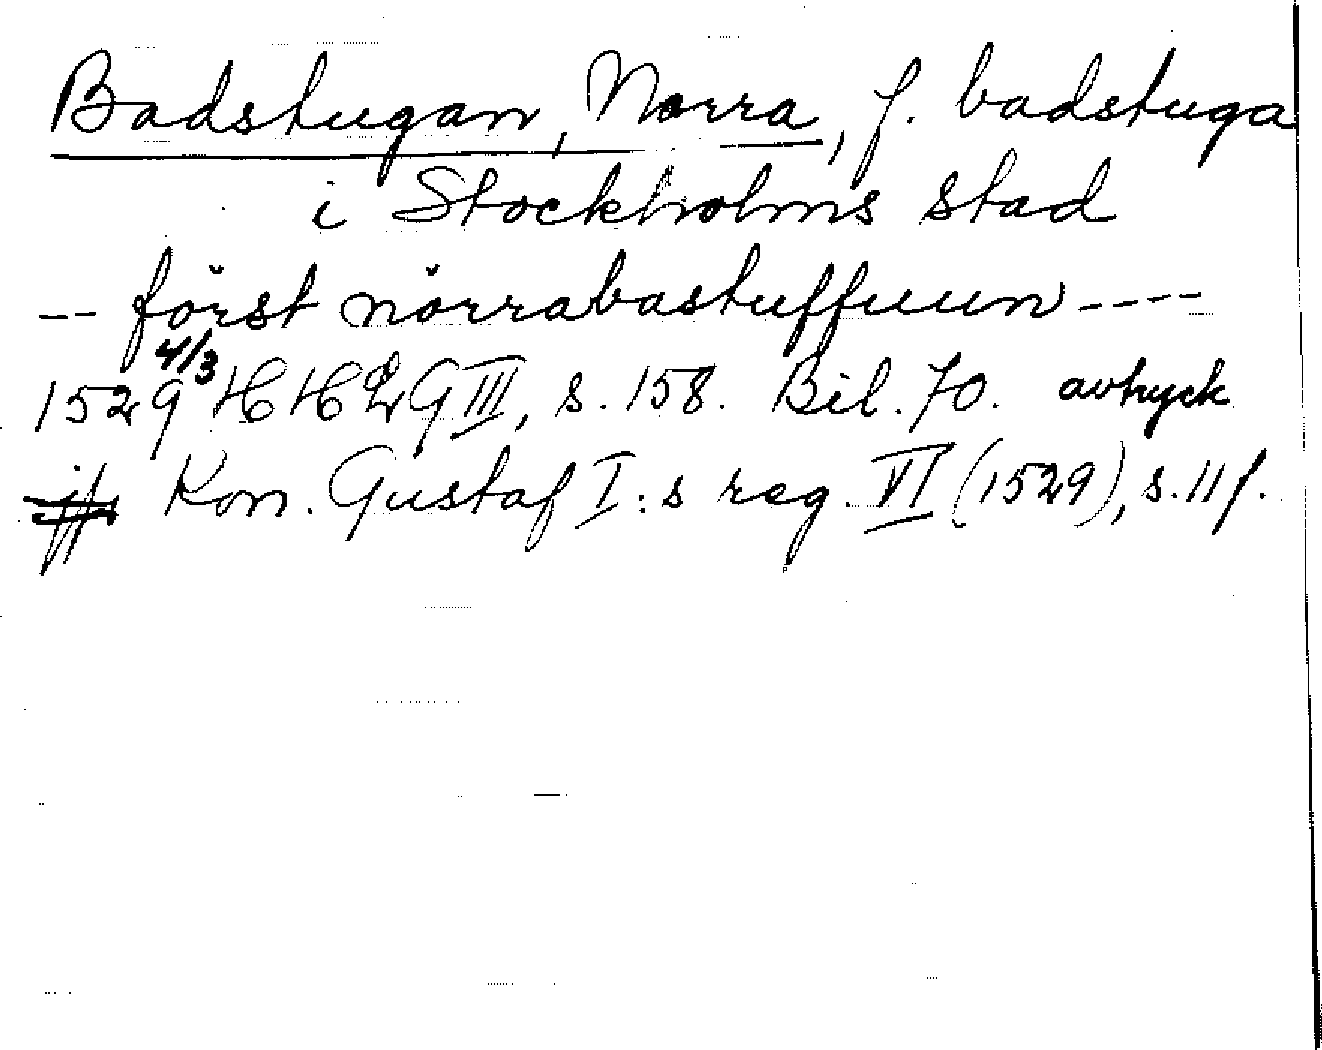 Badstugan, Norra, f. badstuga
i Stockholms stad
-- först nörrabastuffuun ----
1529 4/3 HHLG III, s. 158. Bil. 70. avtryck
Kon. Gustaf I:s reg. VI (1529), s. 11 f.